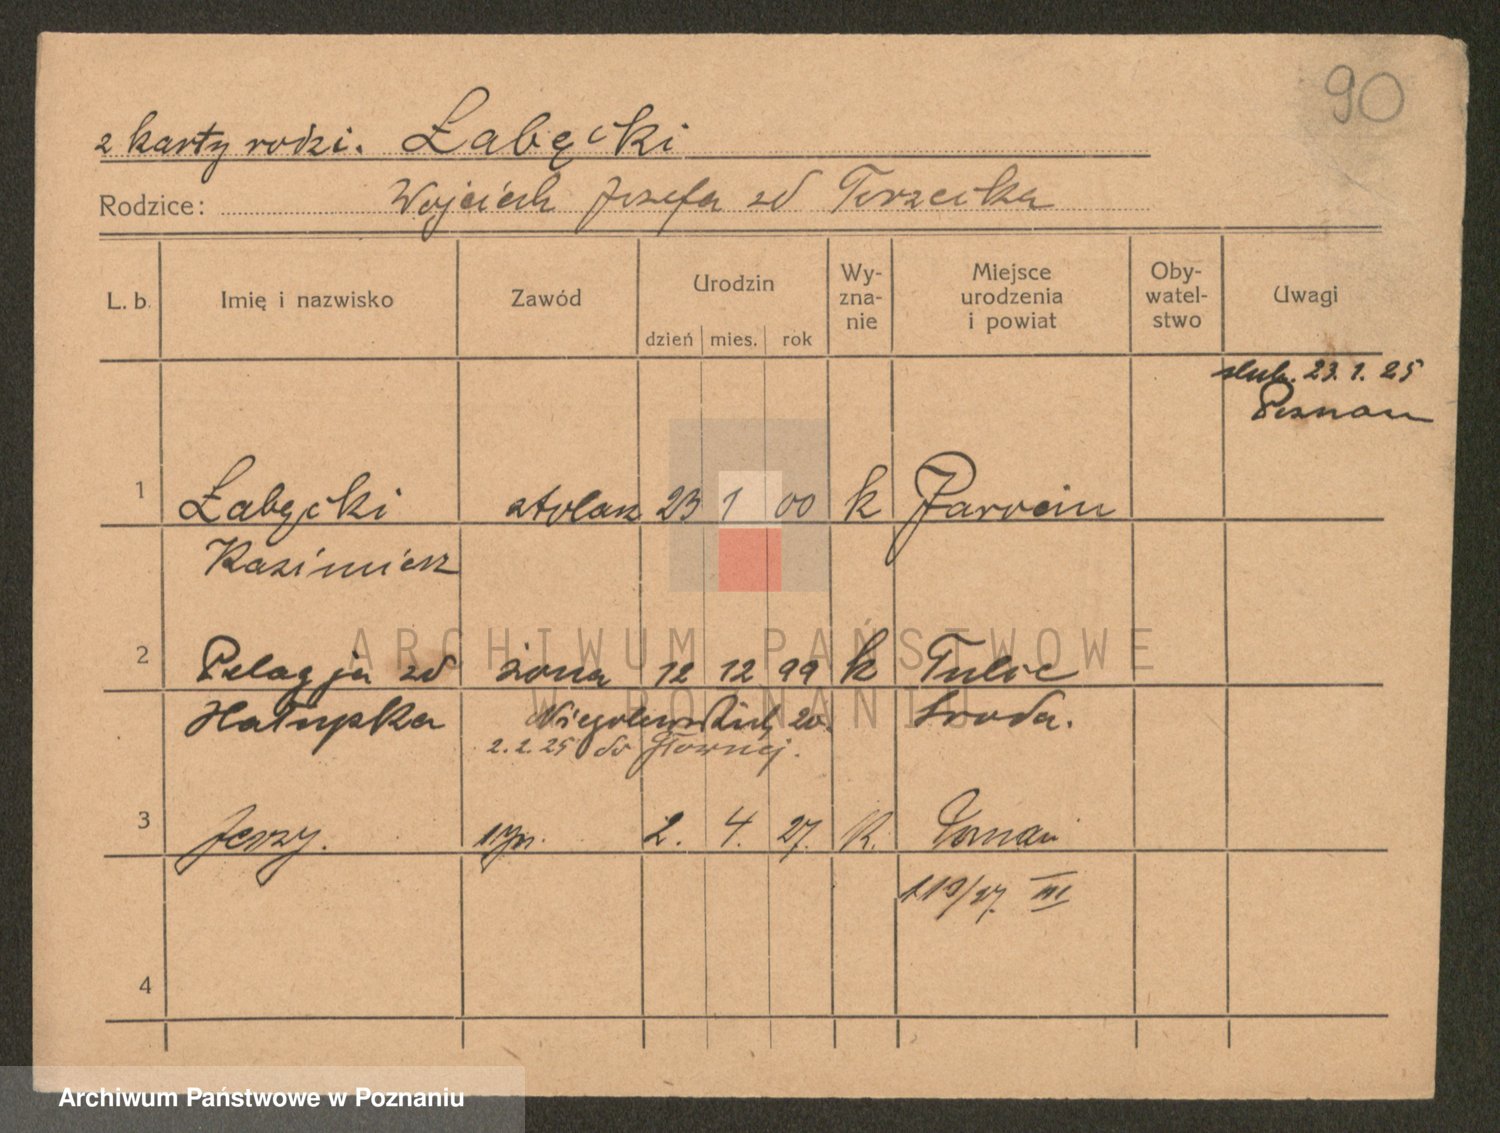 90
z karty rodzi. Łabęcki
Rodzice: Wojciech Józefa zd Torzecka
L. b. Imię i nazwisko Zawód Urodzin Wy-zna-nie Miejsce urodzenia i powiat Oby-watel-stwo Uwagi
dzień mies. rok
ślub. 23.1.25
Poznań
1 Łabęcki stolarz 23 1 00 k Jarocin
Kazimierz
2 Pelagja zd żona 12 12 99 k Tulce
Hałupka Niegolewskich 20. Środa.
2.2.25 do Głównej.
3 Jerzy. syn. 2. 4. 27. K. Poznań
/27. III
4
ARCHIWUM PAŃSTWOWE
W POZNANIU
Archiwum Państwowe w Poznaniu